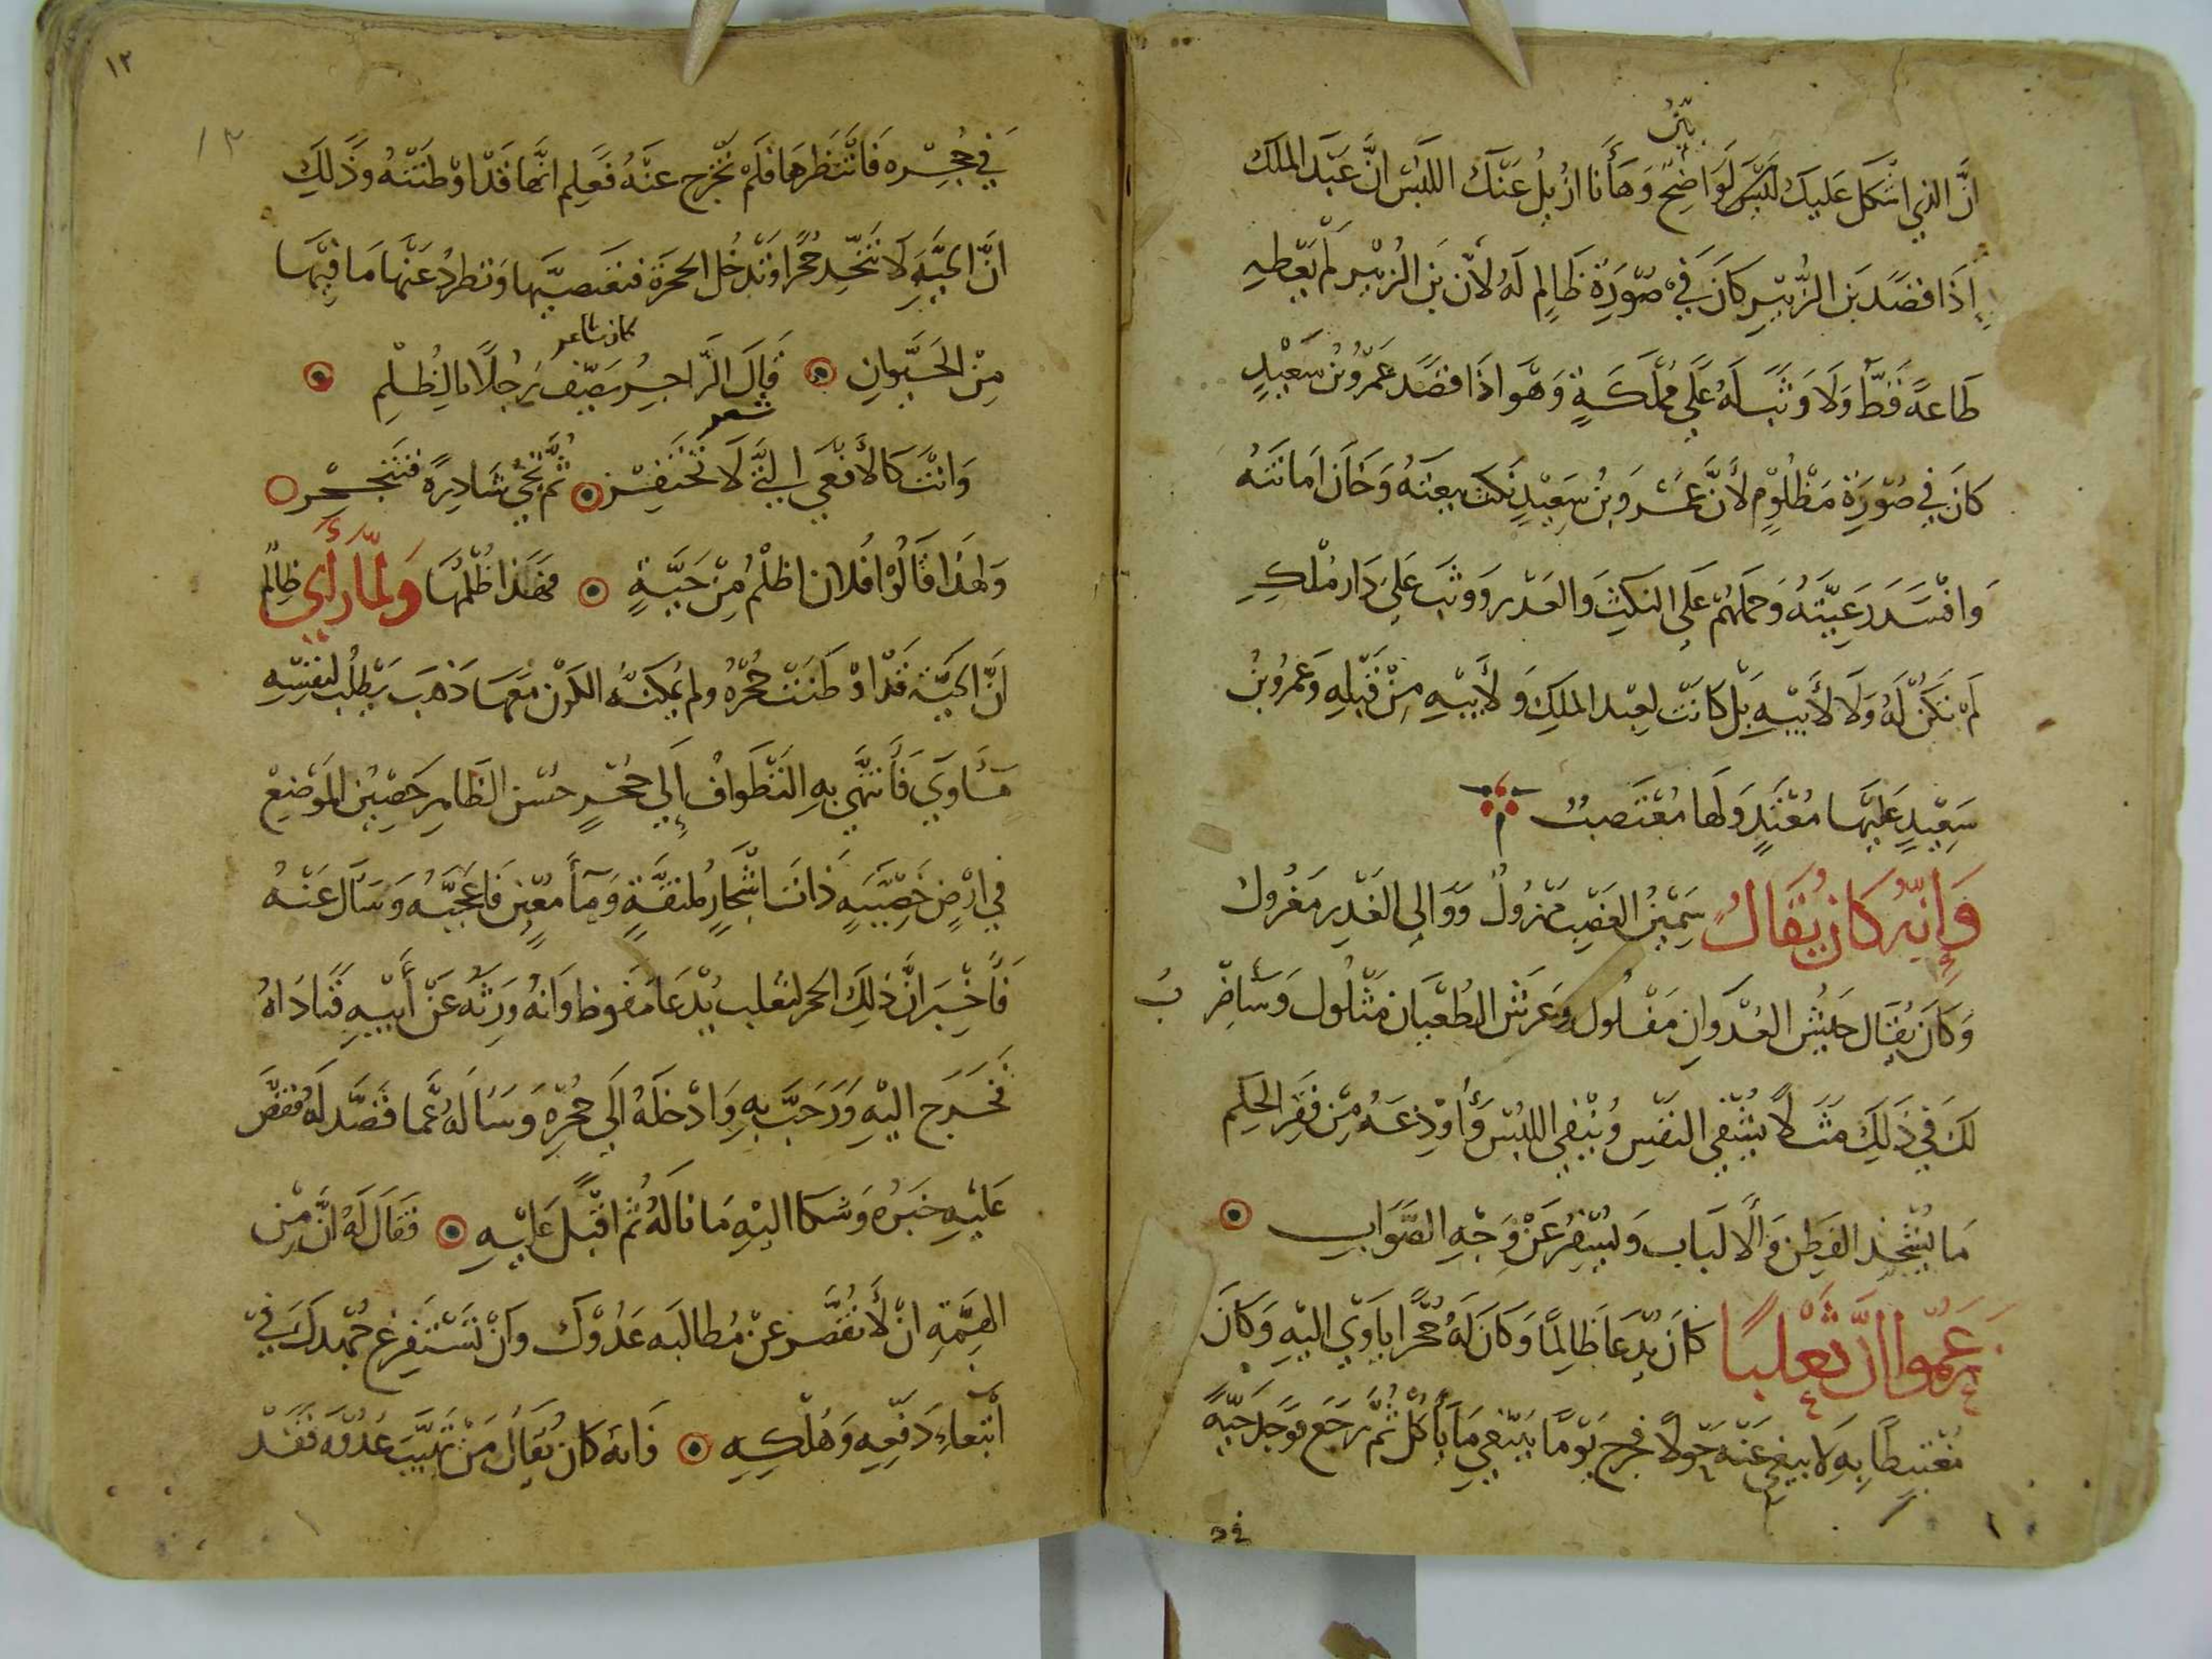 بيّن
انّ الذي اشكل عليك لبيّن لواضح وها أنا ازيل عنك اللبس انّ عبد الملك
اذا قصد بن الزبير كان في صورة ظالم له لأن بن الزبير لم يعطه
طاعة قط ولا وثب له على مملكة وهو اذا قصد عمرو بن سعيد
كان في صورة مظلوم لأن عمرو بن سعيد نكث بيعته وخان امانته
وافسد رعيته وحملهم على النكث والغدر ووثب على دار ملك
لم تكن له ولا لأبيه بل كانت لعبد الملك ولأبيه من قبله وعمرو بن
سعيد عليها معتد ولها مغتصب
وإنه كان يقال سمين الغضب مهزول ووالي الغدر معزول
وكان يقال جيش العدوان مفلول وعرش الطغيان مثلول وسأضرب
لك في ذلك مثلا يشفي النفس وينفي اللبس وأودعه من فقر الحكم
ما يشحذ الفطن والالباب ويسفر عن وجه الصواب
زعموا ان ثعلبا كان يدعا ظالما وكان له جحرا ياوي اليه وكان
مغتبطا به لا يبغي عنه حولا فخرج يوما يبتغي ما يأكل ثم رجع فوجد حية
في
١٣
١٣
في جحره فانتظرها فلم تخرج عنه فعلم انها قد اوطنته وذلك
ان الحية لا تتخذ جحرا وتدخل الجحرة فتغتصبها وتطرد عنها ما فيها
من الحيوان قال الراجز يصف رجلا بالظلم
كان شاعر
شعر
وانت كالأفعى التي لا تحتفر ثم تجي سادرة فتنجحر
ولهذا قالوا فلان اظلم من حية فهذا ظلمها ولما رأى ظالم
ان الحية قد اوطنت جحره ولم يمكنه الكون معها ذهب يطلب لنفسه
مأوى فانتهى به التطواف إلى جحر حسن الظاهر حصين الموضع
في ارض خصيبه ذات اشجار ملتفة ومآ معين فاعجبه وسأل عنه
فأخبر ان ذلك الجحر لثعلب يدعا مفوض وانه ورثه عن أبيه فناداه
فخرج اليه ورحب به وادخله الى جحره وسأله عما قصد له فقص
عليه خبره وشكا اليه ما ناله ثم اقبل عليه فقال له انّ من
الهمة ان لا تقصر عن مطالبه عدوك وان تستفرغ جهدك في
ابتغاء دفعه وهلكه فانه كان يقال من تهيب عدوه فقد